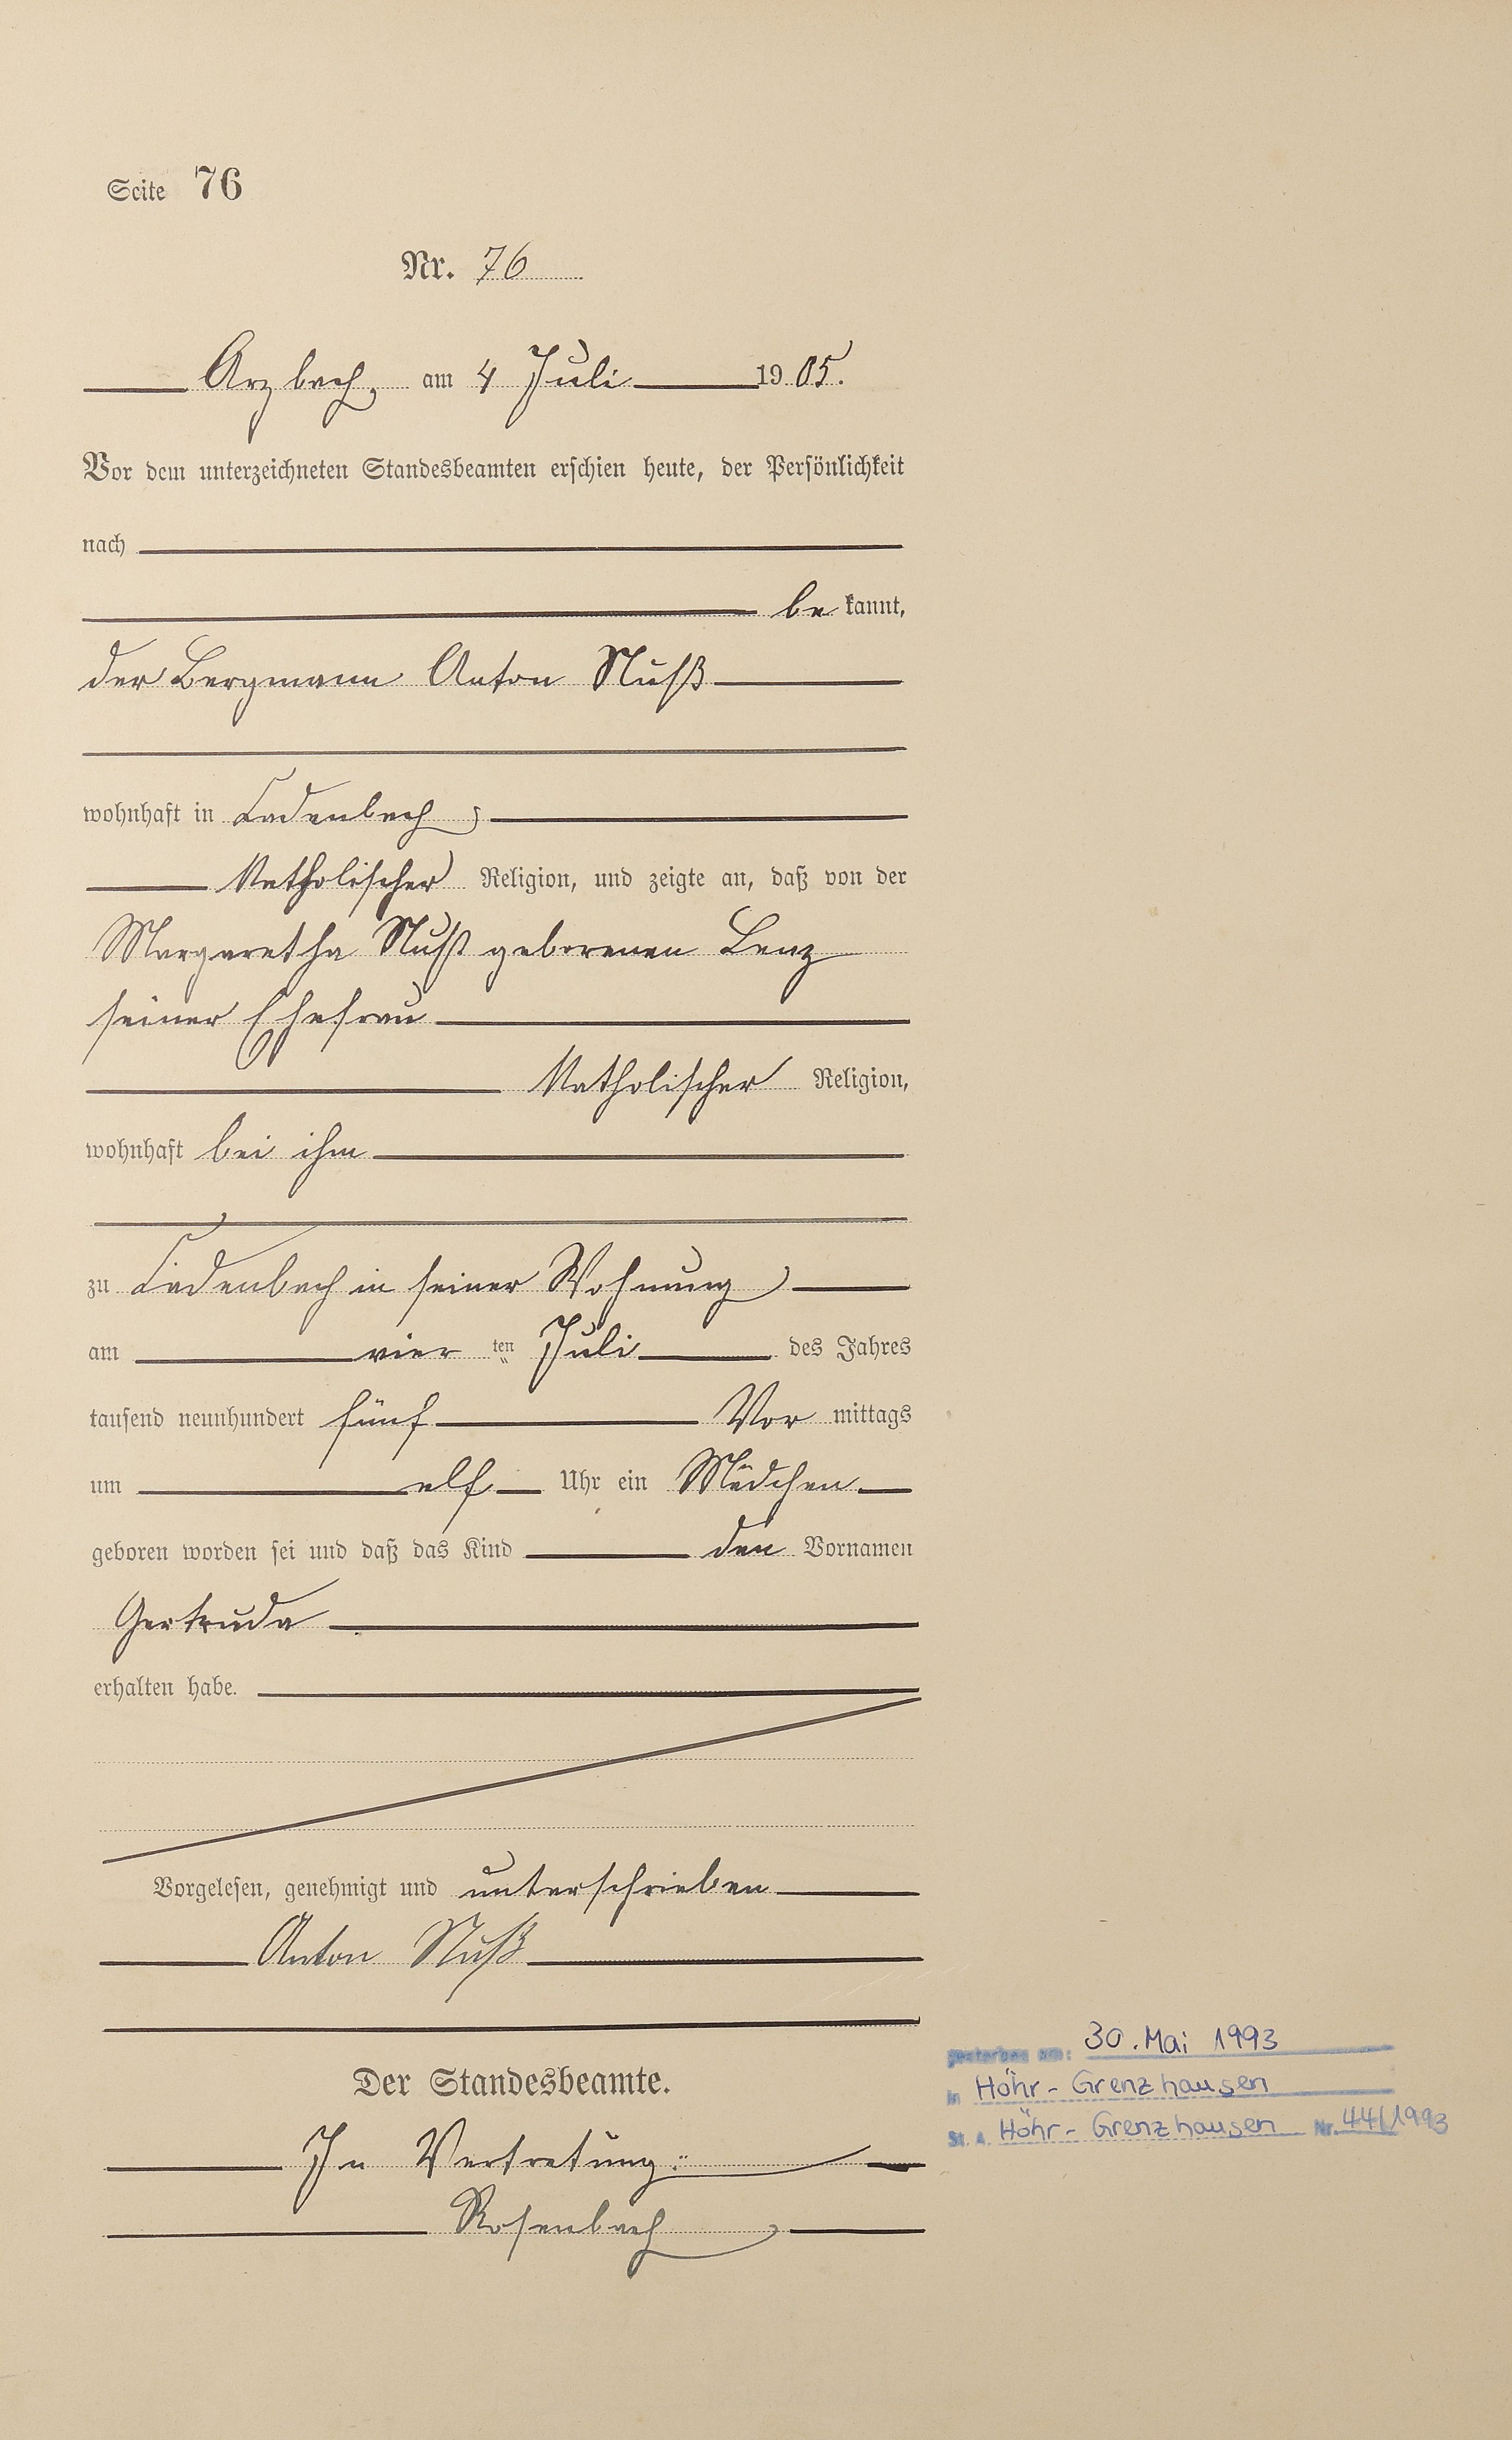 Seite 76
Nr. 76
Arzbach, am 4 Juli 1905.
Vor dem unterzeichneten Standesbeamten erschien heute, der Persönlichkeit
nach
be kannt,
der Bergmann Anton Nuß
wohnhaft in Cadenbach,
Katholischer Religion, und zeigte an, daß von der
Margaretha Nuß geborenen Lenz
seiner Ehefrau
Katholischer Religion,
wohnhaft bei ihm
zu Cadenbach in seiner Wohnung
am vier ten Juli des Jahres
tausend neunhundert fünf Vor mittags
um elf Uhr ein Mädchen
geboren worden sei und daß das Kind den Vornamen
Gertruda
erhalten habe.
Vorgelesen, genehmigt und unterschrieben
Anton Nuß
Der Standesbeamte.
In Vertretung:
Rosenbach
gestorben am: 30. Mai 1993
in Höhr-Grenzhausen
St. A. Höhr-Grenzhausen Nr. 44/1993